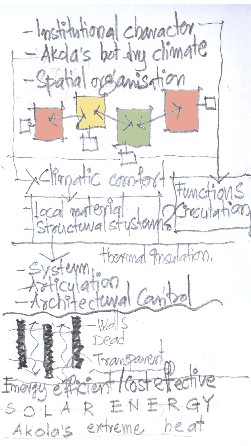 - Institutional character
- Akola's hot dry climate
- Spatial organisation
Climatic comfort
Functions
Circulation
Local material
- Structural systems
thermal insulation.
- System
- Articulation
- Architectural Control
- Walls
- Dead
- Transparent
Energy efficient / Cost effective
SOLAR ENERGY
Akola's extreme heat